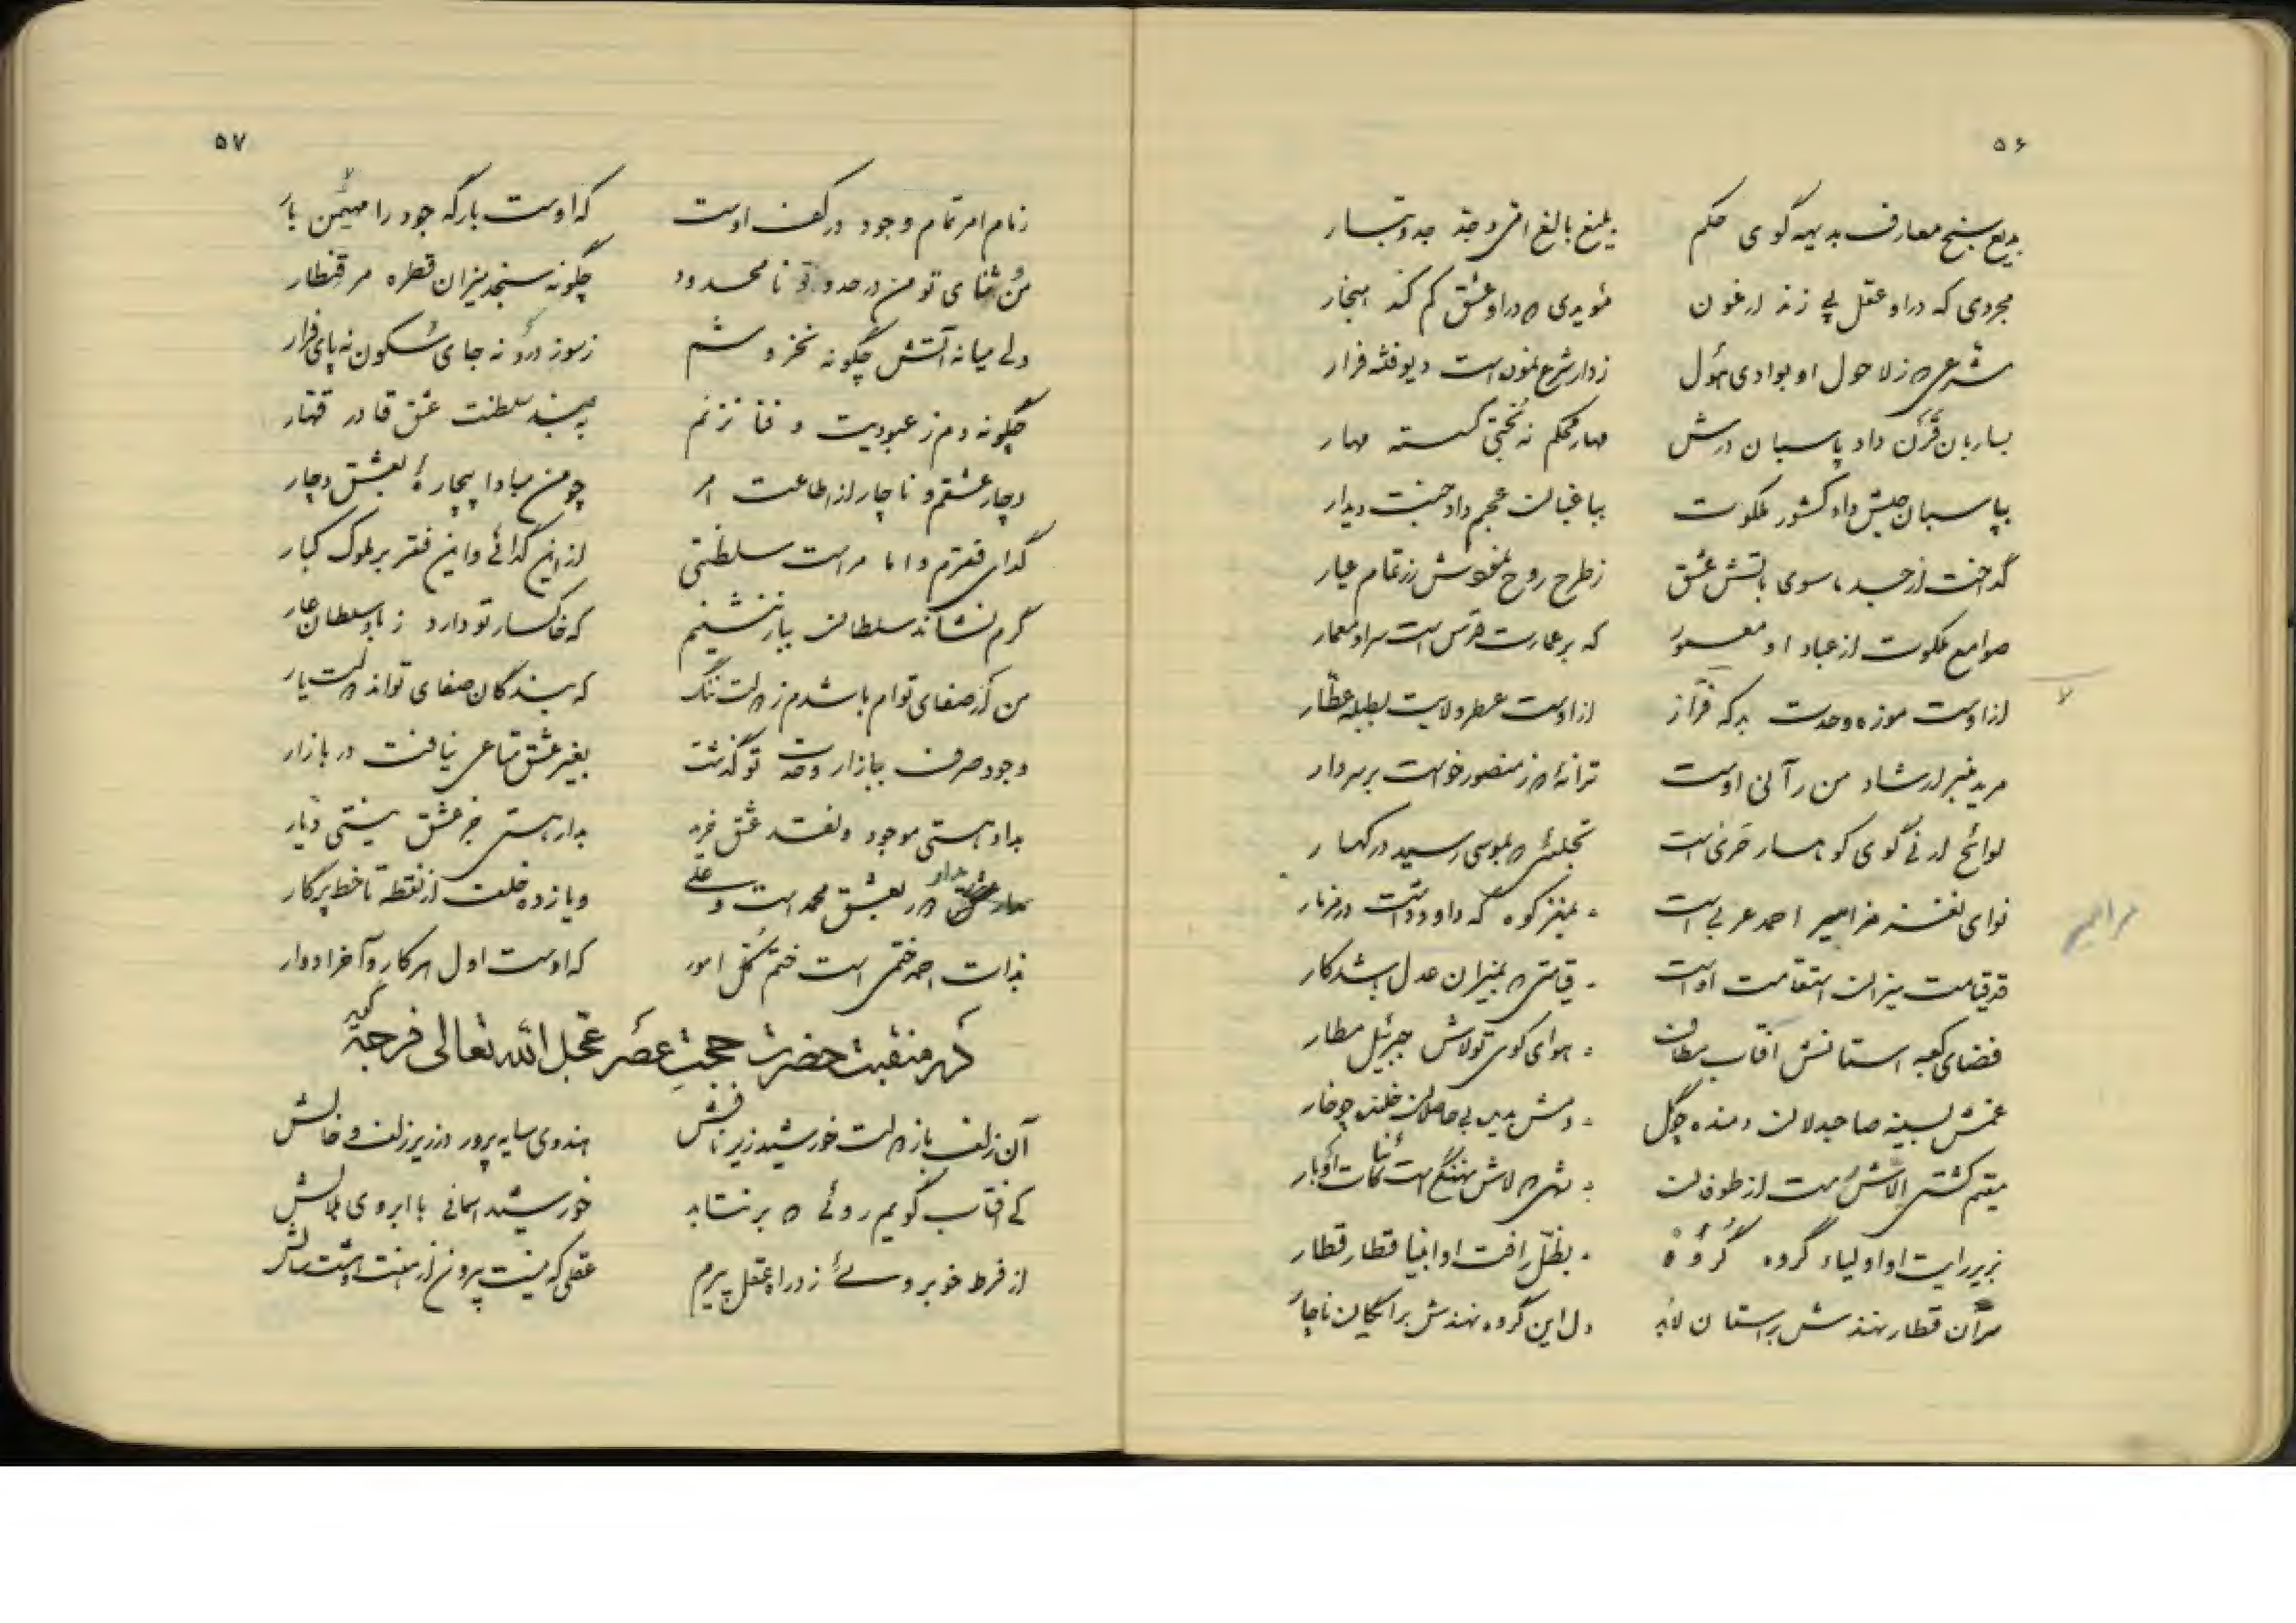 ۵۶
بدیع سنج معارف بدیهه گوی حکم بلیغ بالغ امی و جد و تبار
مجردی که در او عقل پی زند ارغون مؤیدی که در او عشق کم کند هنجار
شرعی که ز لاحول او بوادی هول زدار شرع نمون است دیو فتنه فرار
بساربان قرن داد پاسبان درش مهار محکم نه بختی گسسته مهار
بپاسبان حبش داد کشور ملکوت بباغبان عجم داد جنت دیدار
گداخت از جسد ماسوی باتش عشق ز طرح روح نمودش زر تمام عیار
صوامع ملکوت از عباد او معمور که بر عمارت قدس است سر او معمار
از اوست موزه وحدت از اوست عطر ولایت بطبله عطار
مرید منبر ارشاد من رآنی اوست ترانهٔ که ز منصور خواست بر سر دار
لوائح ارنی گوی کوهسار تجلیئی که بموسی رسید در کهسار
نوای نغمه مزامیر احمد عربی است بمغز کوه که داود داشت در مزمار
قد قیامت میزان استقامت اوست قیامتی که بمیزان عدل باشد کار
فضای کعبه استانش آفتاب مطاف هوای کوی تولاش جبرئیل مطار
غمش بسینه صاحبدلان دمنده چو گل دمش بدیده بی حاصلان خلنده چو خار
مقیم کشتی الاش رست از طوفان که لاش نهنگ است کائنات اوبار
بزیر رایت او اولیاء گروه گروه بظل رافت او انبیا قطار قطار
سر آن قطار نهندش بر استان لابد دل این گروه نهندش برایگان ناچار
مزامیر
۵۷
زمام امر تمام وجود در کف اوست که اوست بارگه جود را مهیمن بار
من ثنای تو من در حد و تو نامحدود چگونه سنجد میزان قطره مر قنطار
ولی میانه آتش چگونه نخروشم ز سوز درد و نه جای سکون نه پای فرار
چگونه دم ز عبودیت و فنا نزنم به پیش سلطنت عشق قادر قهار
دچار عشقم و ناچار از اطاعت امر چو من مبادا بیچارهٔ بعشق دچار
گدای فقرم و اما مراست سلطنتی از این گدائی و این فقر بر ملوک کبار
گرم نشاند سلطان بباز ننشینم که خاکسار تو دارد ز باز سلطان عار
من کز صفای توام باشدم ز دولت ننگ که بندگان صفای تواند دولت یار
وجود صرف ببازار وحدت تو گذشت بغیر عشق متاعی نیافت در بازار
بداد هستی موجود و نقد عشق خرید بدار هستی جز عشق نیستی دیار
مدار عشق محمد است و علی و یازده خلعت از نقطه تا خط پرگار
بذات احمد ختمی است ختم کل امور که اوست اول هر کار و آخر ادوار
در منقبت حضرت حجت عصر عجل الله تعالی فرجه گوید
آن زلف باز دولت خورشید زیر بالش هندوی سایه پرور در زیر زلف و خالش
کی افتاب گویم روئی که بر نتابد خورشید اسمانی با ابروی هلالش
از فرط خوبروئی ز ورای عقل پیرم عقلی که نیست بیرون از هفت و هشت سالش